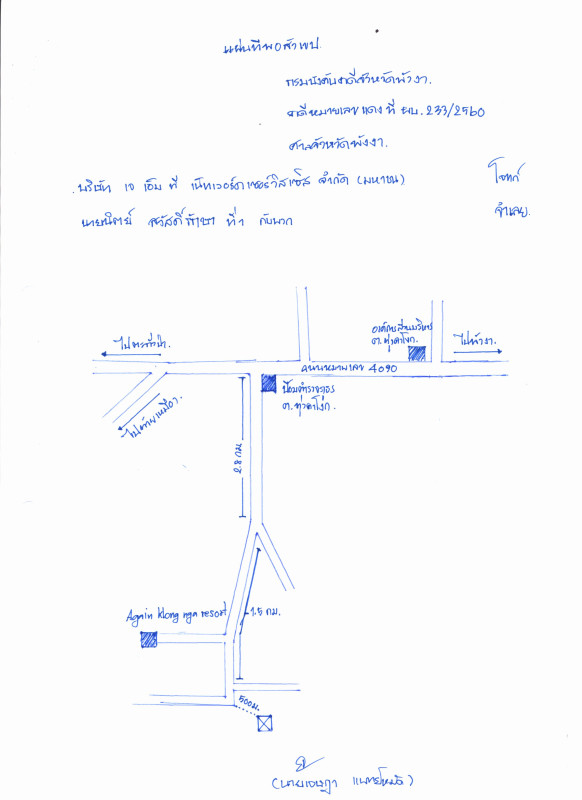 แผนที่พอสังเขป.
กรมบังคับคดีจังหวัดพังงา.
คดีหมายเลขแดงที่ ผบ. 233/2560
ศาลจังหวัดพังงา.
บริษัท เจ เอ็ม ที เน็ทเวอร์คเซอร์วิสเซ็ส จำกัด (มหาชน) โจทก์
สวัสดิ์รักษา ที่ 1 กับพวก จำเลย.
องค์การส่วนบริหาร
ต. ทุ่งคาโงก.
ไปตะกั่วป่า.
ไปพังงา.
ถนนหมายเลข 4090
ป้อมตำรวจ
ต. ทุ่งคาโงก.
ไปท้ายเหมือง.
2.8 กม
Again klong nga resort
1.5 กม.
500ม.